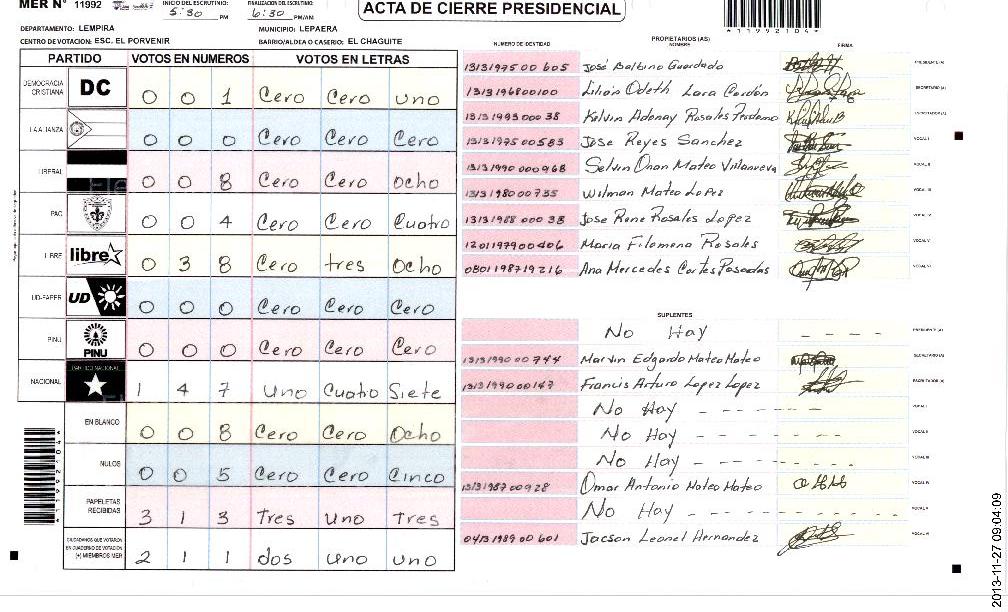 MER Nº 11992
INICIO DEL ESCRUTINIO: 5:30 PM
FINALIZACION DEL ESCRUTINIO: 6:30 PM/AM
ACTA DE CIERRE PRESIDENCIAL
*11992104*
DEPARTAMENTO: LEMPIRA
MUNICIPIO: LEPAERA
CENTRO DE VOTACION: ESC. EL PORVENIR
BARRIO/ALDEA O CASERIO: EL CHAGUITE
PARTIDO VOTOS EN NUMEROS VOTOS EN LETRAS
DEMOCRACIA CRISTIANA DC 0 0 1 Cero Cero uno
LA ALIANZA 0 0 0 Cero Cero Cero
LIBERAL 0 0 8 Cero Cero Ocho
PAC 0 0 4 Cero Cero Cuatro
LIBRE libre 0 3 8 Cero tres Ocho
UD-FAPER UD 0 0 0 Cero Cero Cero
PINU PINU 0 0 0 Cero Cero Cero
NACIONAL PARTIDO NACIONAL 1 4 7 Uno Cuatro Siete
EN BLANCO 0 0 8 Cero Cero Ocho
NULOS 0 0 5 Cero Cero Cinco
PAPELETAS RECIBIDAS 3 1 3 Tres uno Tres
CIUDADANOS QUE VOTARON EN CUADERNO DE VOTACION (+) MIEMBROS MER 2 1 1 dos uno uno
PROPIETARIOS (AS)
NUMERO DE IDENTIDAD NOMBRE FIRMA
1313197500605 José Balbino Guardado PRESIDENTE (A)
1313196800100 Lilian Odeth Lara Cordon SECRETARIO (A)
1313199300038 Kelvin Adonay Rosales Perdomo ESCRUTADOR (A)
1313197500583 Jose Reyes Sanchez VOCAL I
13131990000968 Selvin Onan Mateo Villanueva VOCAL II
1313198000735 Wilman Mateo Lopez VOCAL III
1313198800038 Jose Rene Rosales Lopez VOCAL IV
1201197900406 Maria Filomena Rosales VOCAL V
0801198719216 Ana Mercedes Cortes Posadas VOCAL VI
SUPLENTES
No Hay - - - PRESIDENTE (A)
1313199000744 Marvin Edgardo Mateo Mateo SECRETARIO (A)
1313199000147 Francis Arturo Lopez Lopez ESCRUTADOR (A)
No Hay - - - - - - - VOCAL I
No Hay - - - - - - - - VOCAL II
No Hay - - - - - - - - VOCAL III
1313198700928 Omar Antonio Mateo Mateo VOCAL IV
No Hay - - - - - - - - VOCAL V
0413198900601 Jacson Leonel Hernandez VOCAL VI
*11992104*
2013-11-27 09:04:09